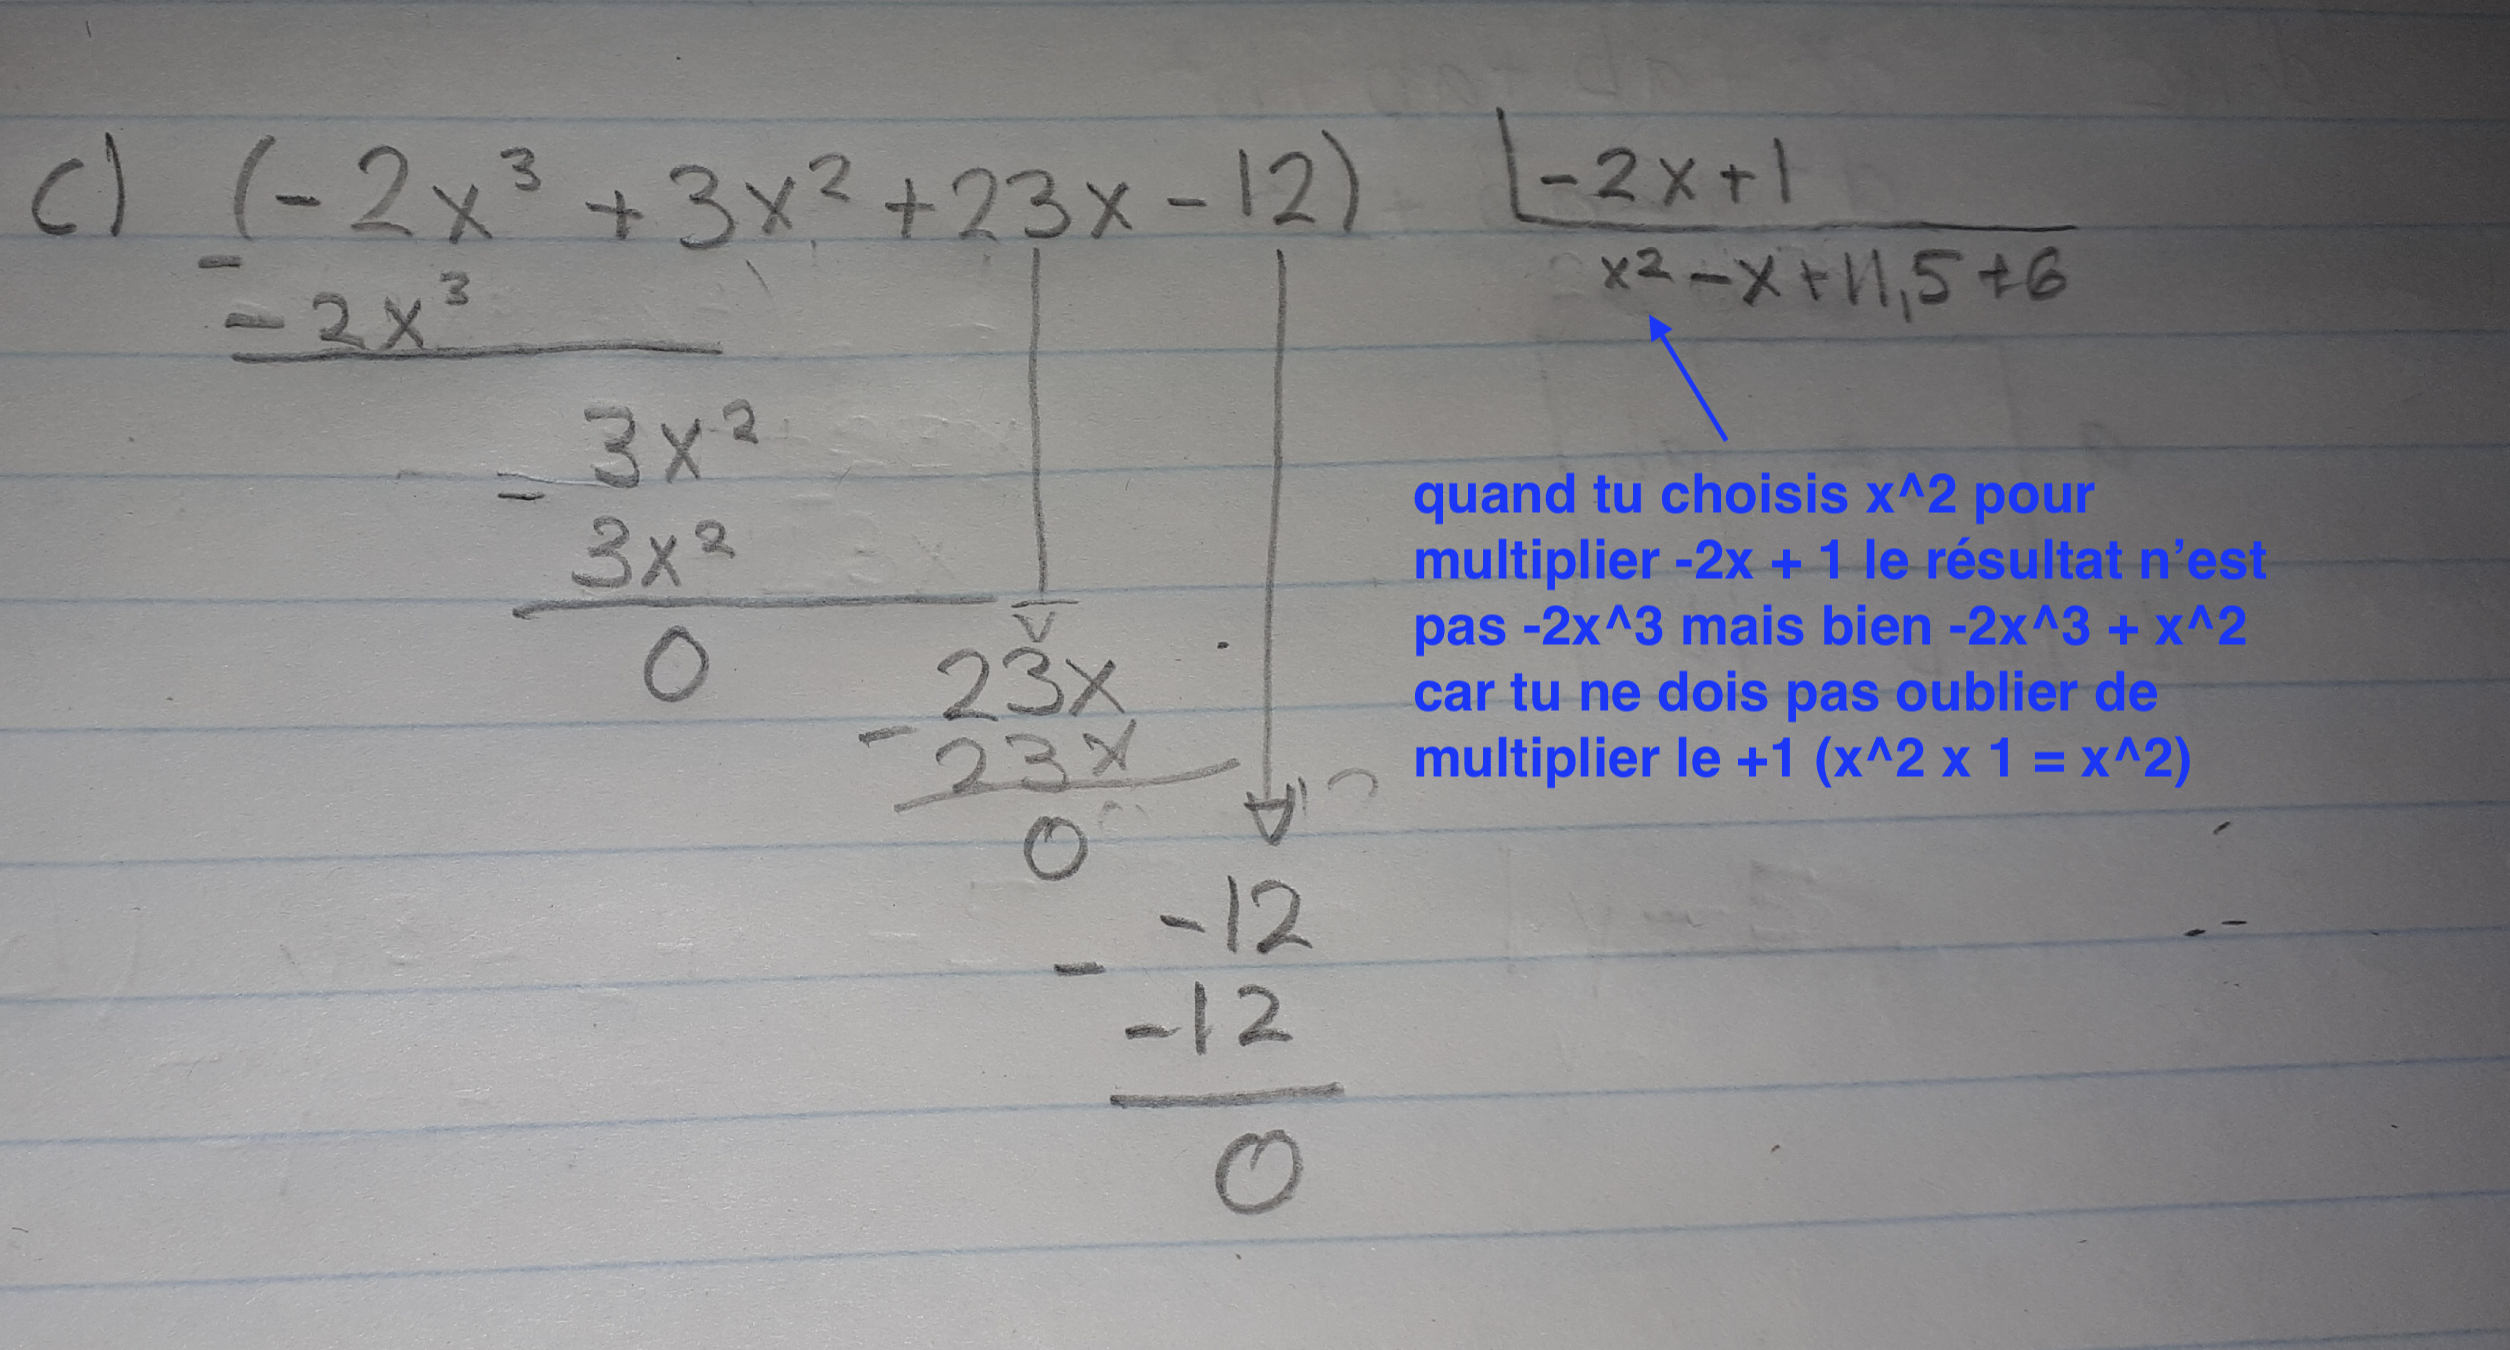 c) (-2x³ + 3x² + 23x - 12) | -2x + 1
x² - x + 11,5 + 6
-
-2x³
3x²
-
3x²
0
23x
-
23x
0
-12
-
-12
0
quand tu choisis x^2 pour
multiplier -2x + 1 le résultat n’est
pas -2x^3 mais bien -2x^3 + x^2
car tu ne dois pas oublier de
multiplier le +1 (x^2 x 1 = x^2)